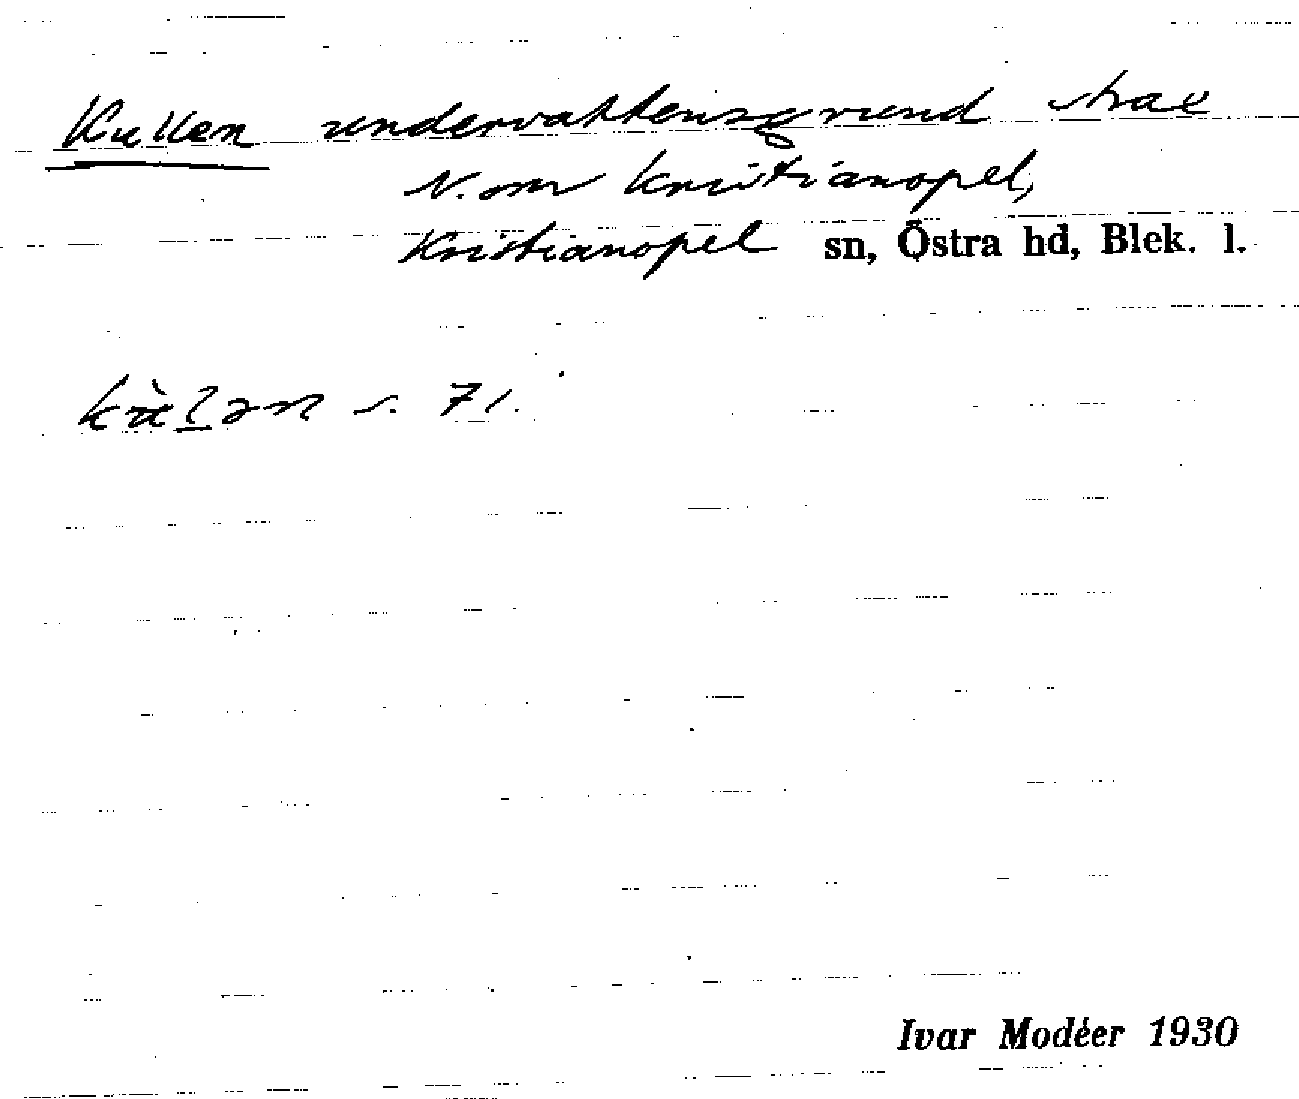 Kullen undervattensgrund strax
N. om Kristianopel,
Kristianopel sn, Östra hd, Blek. l.
s. 71.
Ivar Modéer 1930